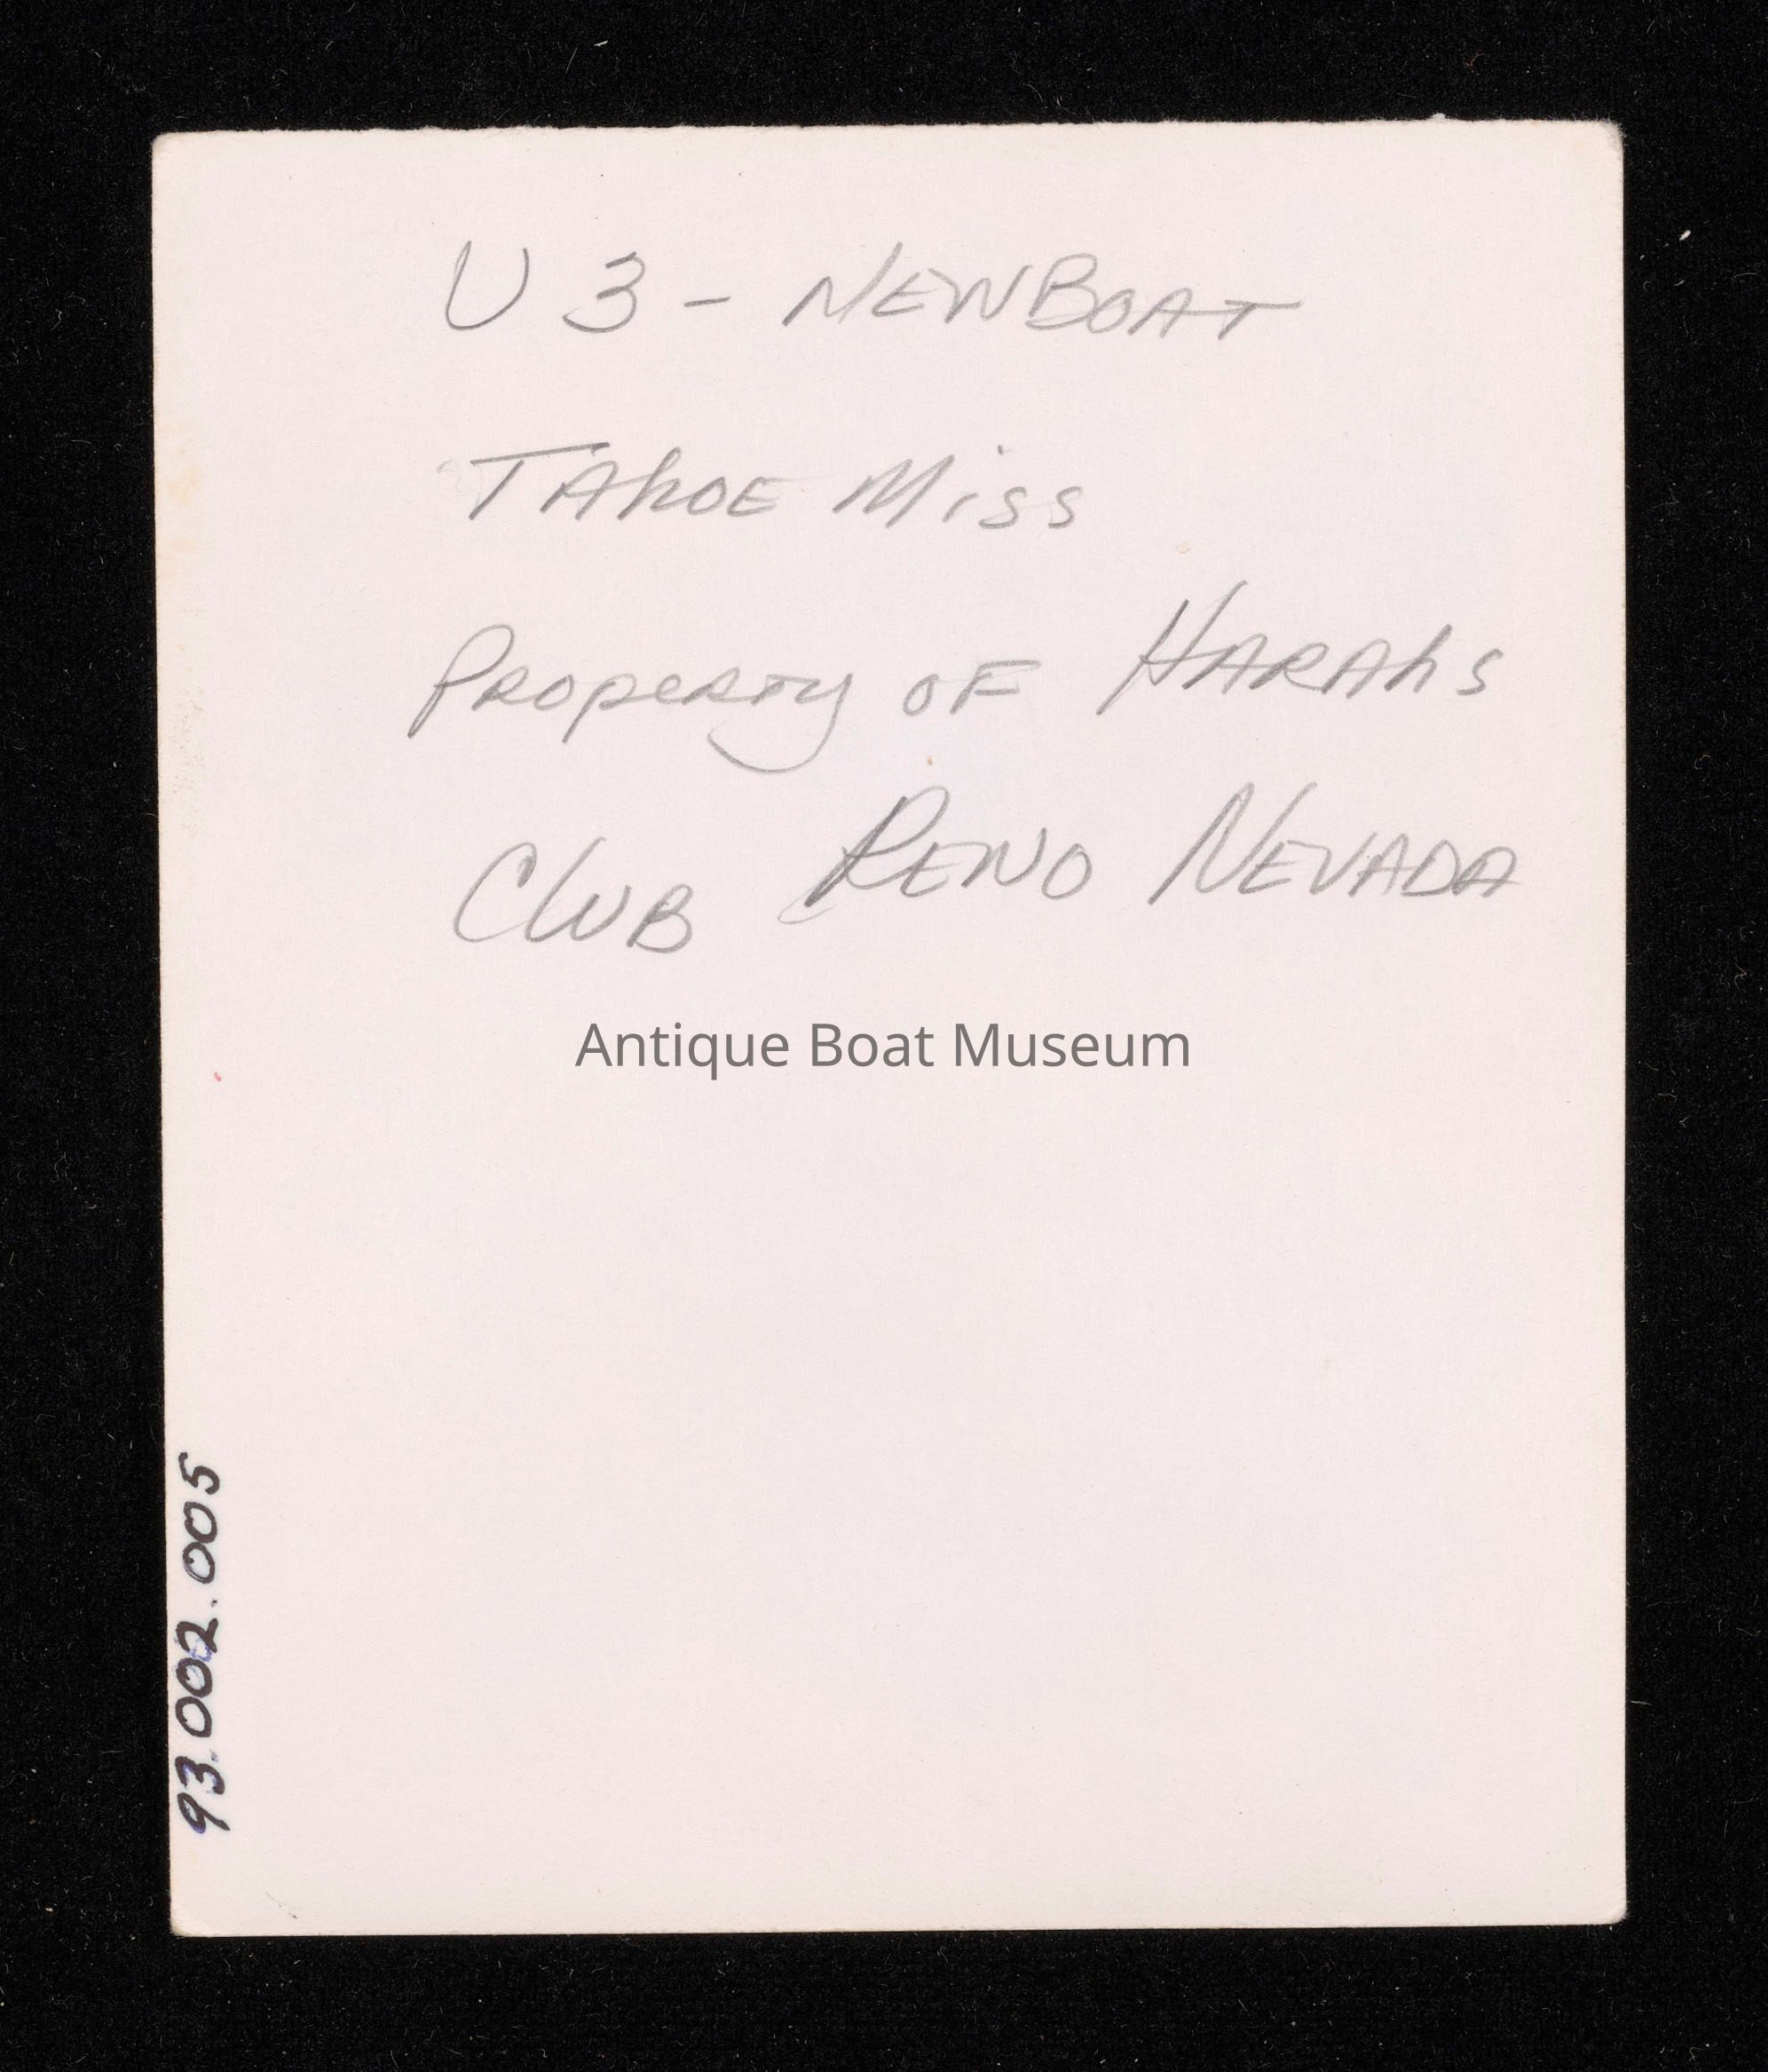 U 3 - NEWBOAT
TAhOE Miss
PROpeRTy OF HARAhS
ClUB RENO NEVADA
Antique Boat Museum
93.002.005